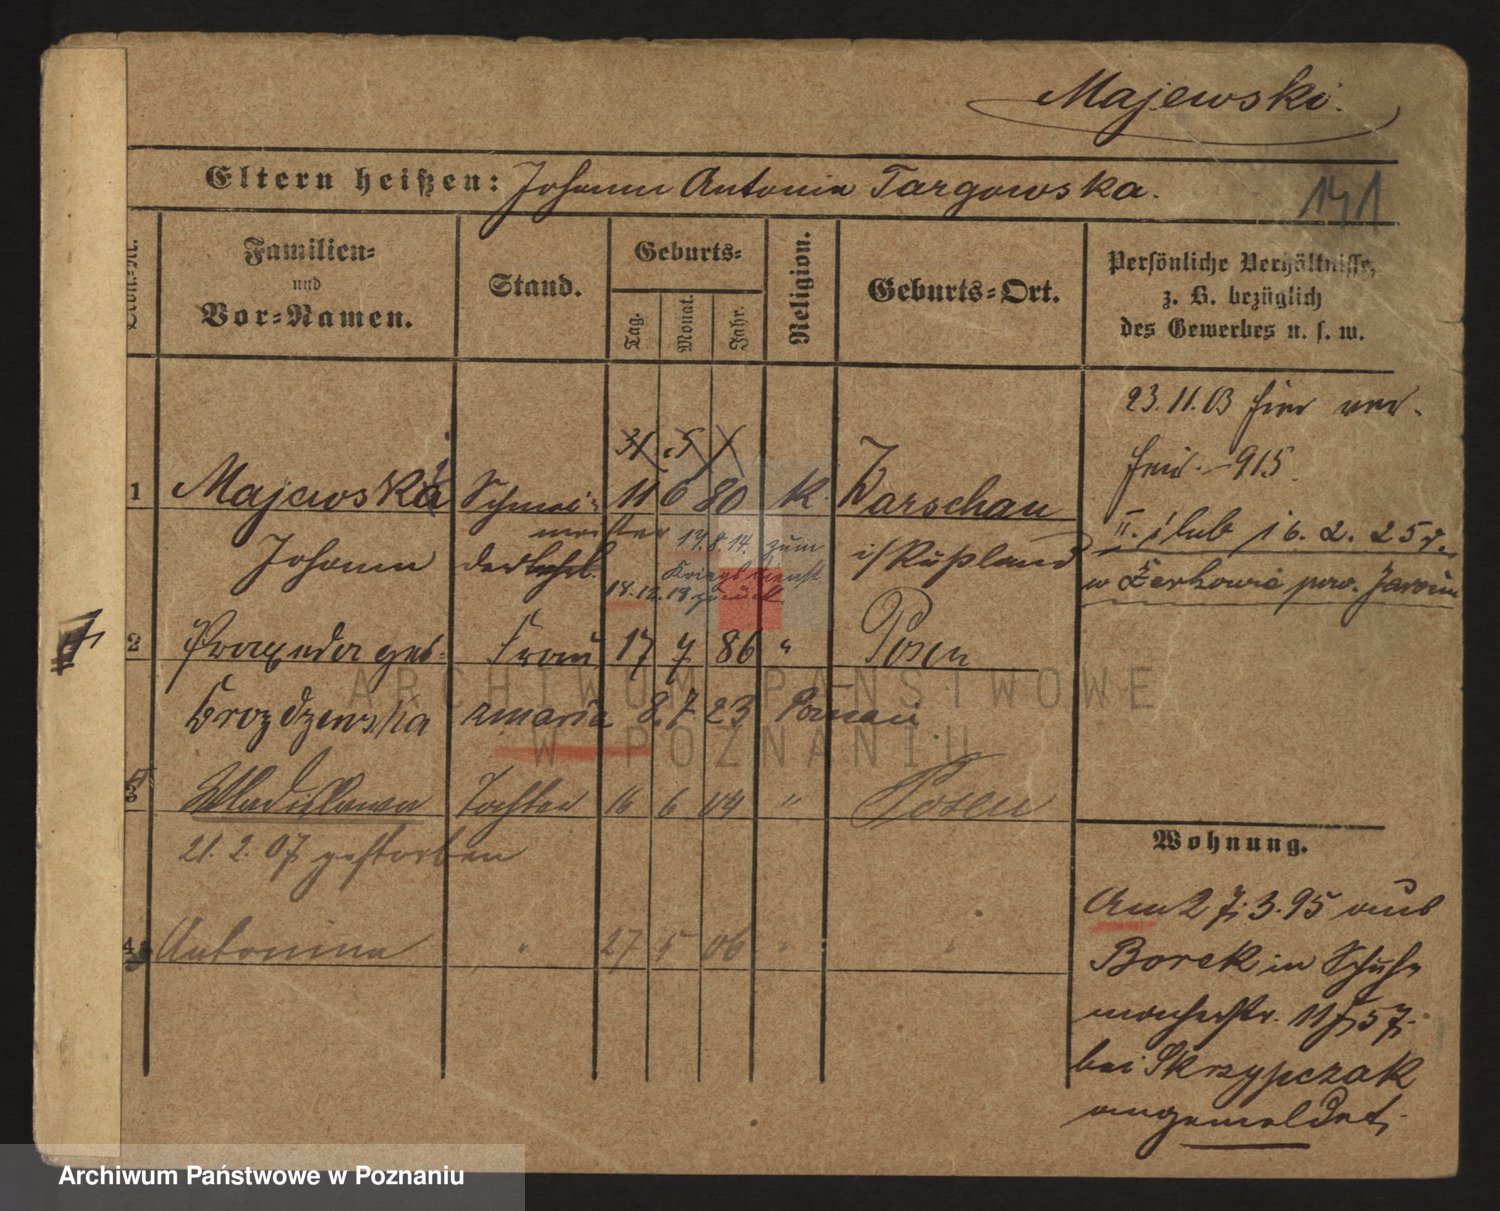 Majewski.
Eltern heißen: Johann Antonia Targowska.
141
Familien= und Vor=Namen.
Stand.
Geburts=
Tag. Monat. Jahr.
Religion.
Geburts=Ort.
Persönliche Verhältnisse,
z. B. bezüglich
des Gewerbes u. s. w.
23.11.03 hier ver-
heir. - 915
31 5
1 Majewski 11 6 80 K. Warschau
meister 14.8.14. zum
II. ślub 16. 2. 25 r.
Johann i/Rußland
Kriegsdienst
w Żerkowie pow. Jarocin
18.12.18 zurück
2 Praxeda geb. Frau 17 7 86 " Posen
Drozdzewska zmarła 8.7.23 Poznań
3 Wladislawa Tochter 16 6 04 " Posen
21. 2. 07 gestorben
Wohnung.
4 Antonina " 27 5 06 " "
Am 27.3.95 aus
Borek in Schuh-
macherstr. 11 57.
bei Skrzypczak
angemeldet.
ARCHIWUM PAŃSTWOWE
W POZNANIU
Archiwum Państwowe w Poznaniu